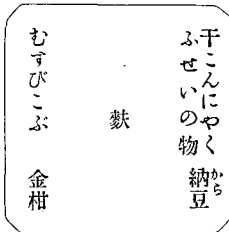 干こんにやく
ふせいの物　納豆
から
麩
むすびこぶ　金柑